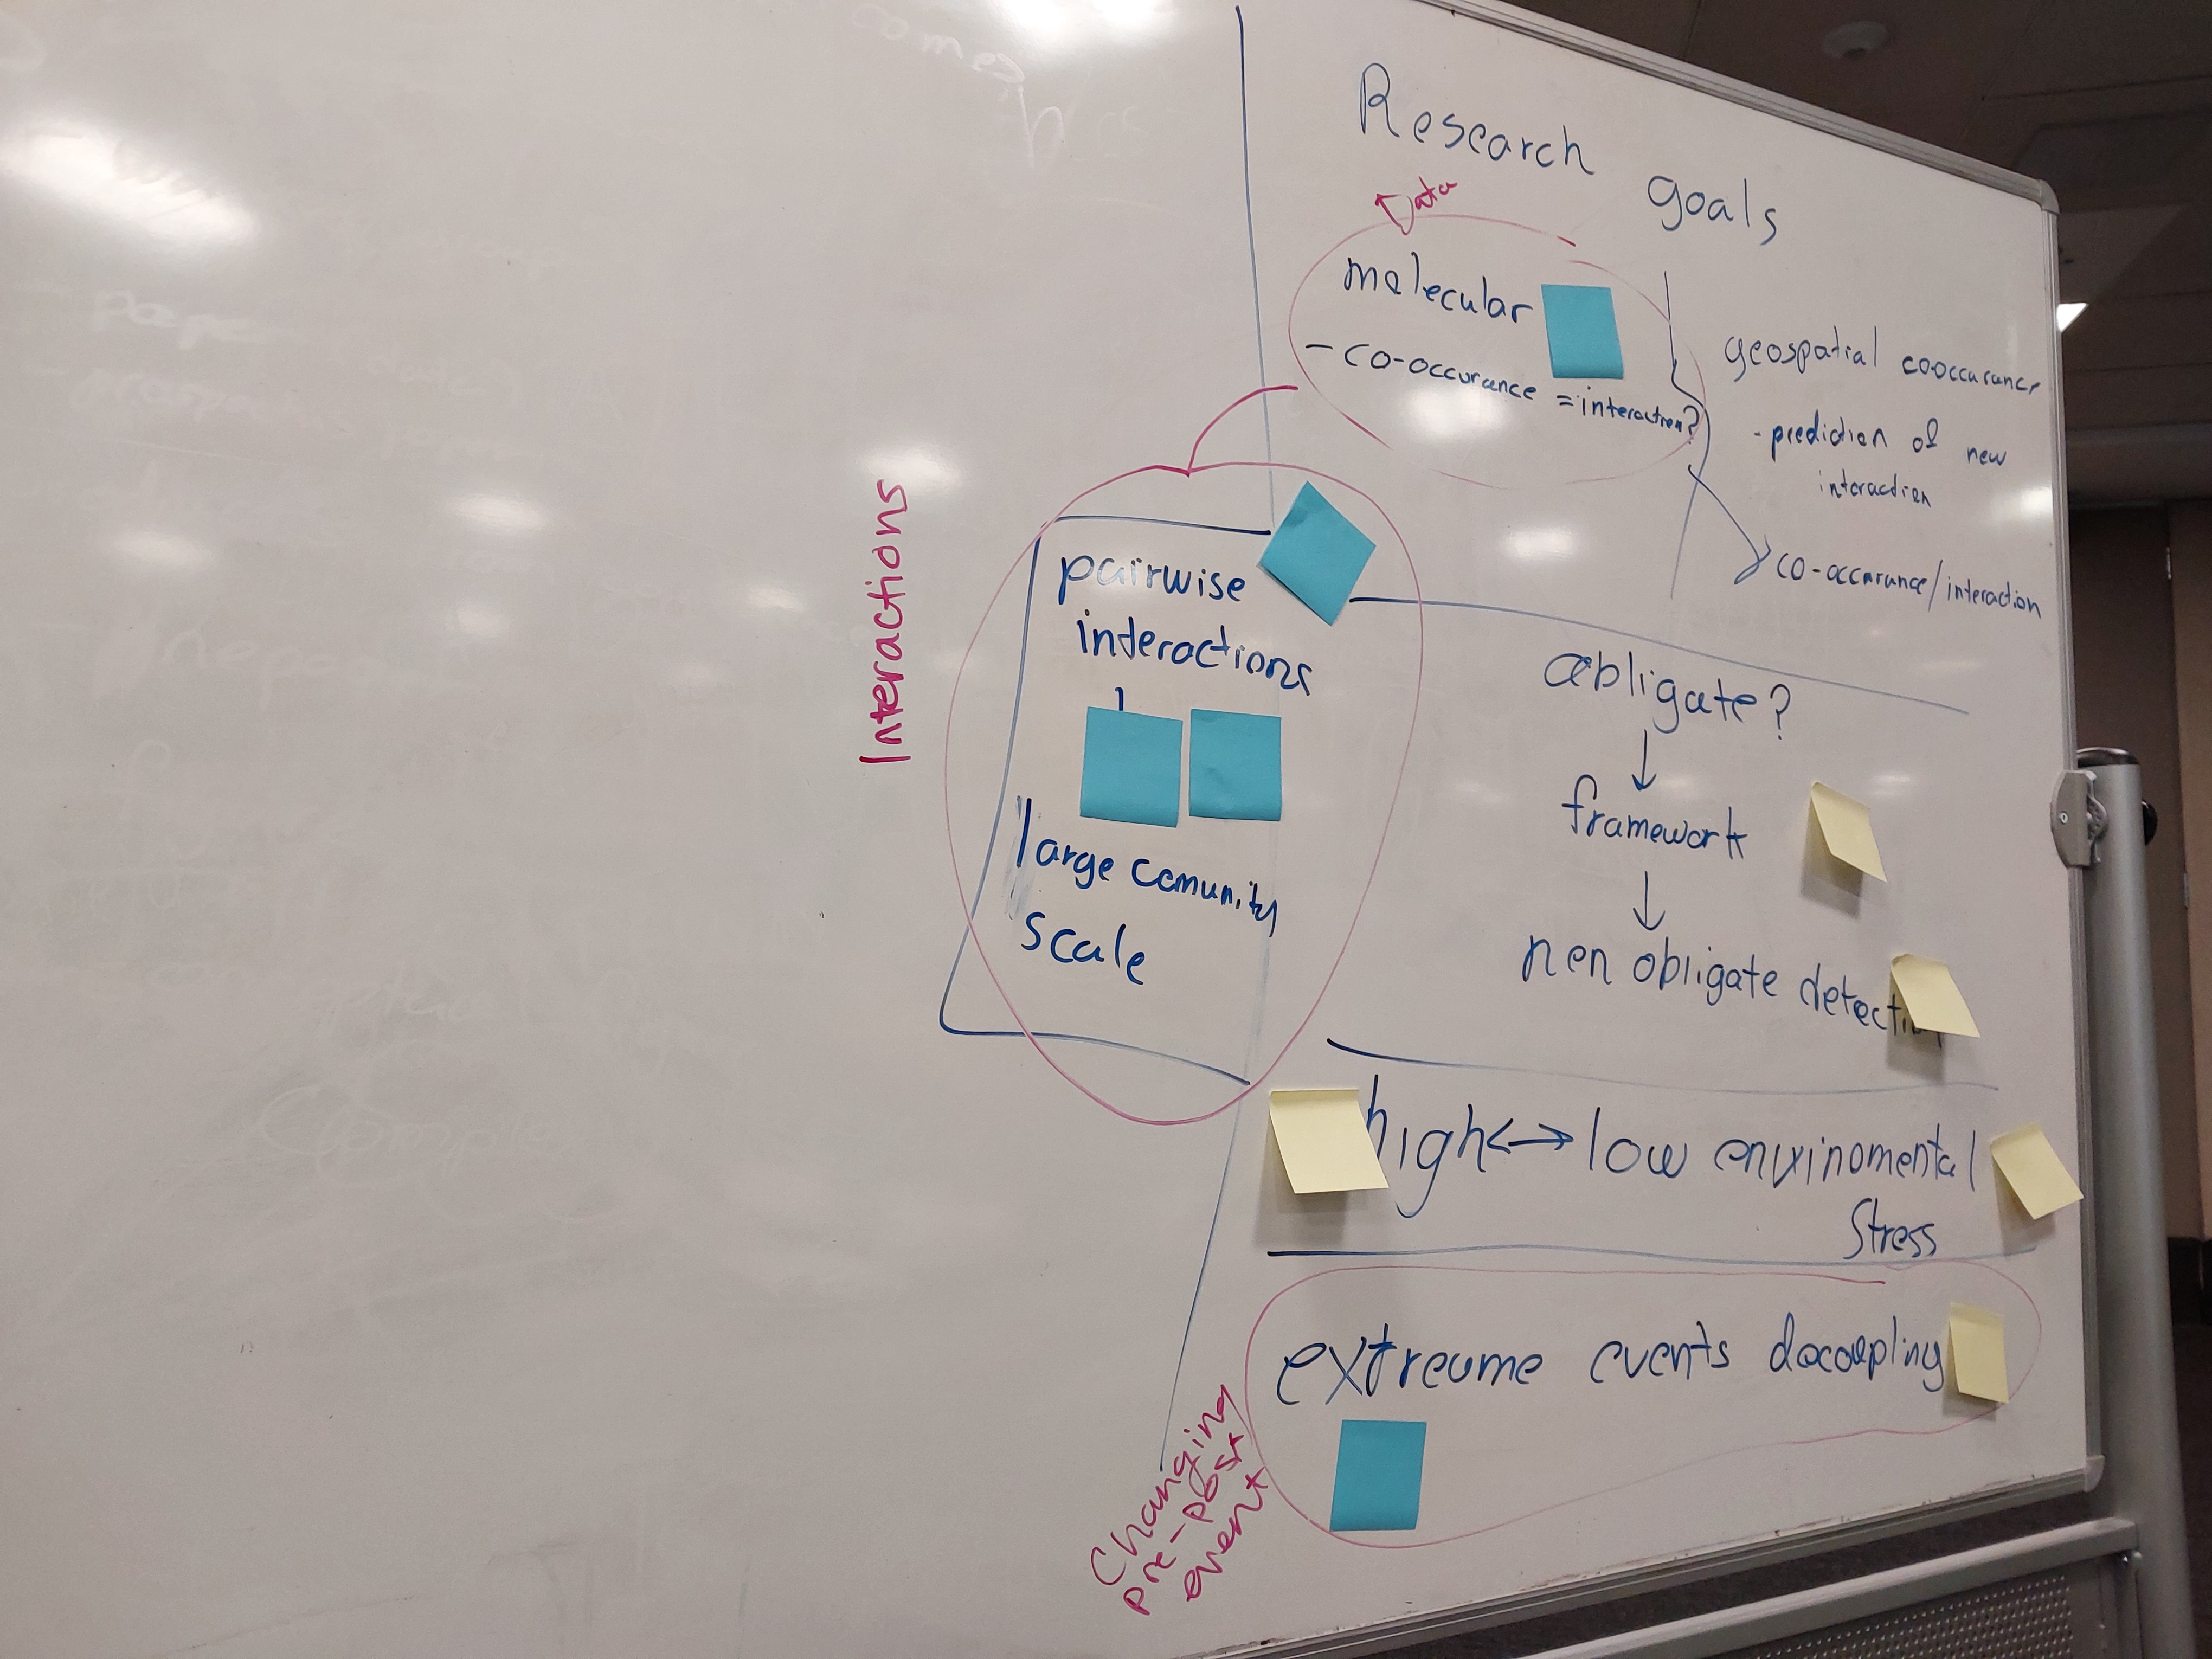 Research goals
Data
molecular
- co-occurance = interaction?
geospatial cooccurance
- prediction of new
interaction
co-occurance/interaction
Interactions
pairwise
interactions
large comunity
scale
obligate?
↓
framework
↓
non obligate detecti
high <-> low envinomental
Stress
extreume events decoupling
Changing
pre-post
event